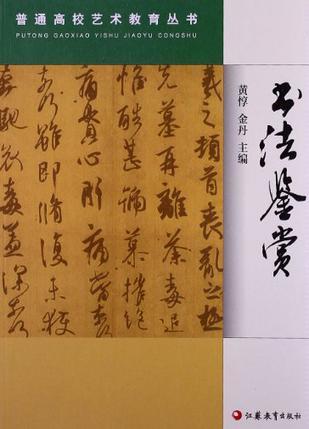 普通高校艺术教育丛书
PUTONG GAOXIAO YISHU JIAOYU CONGSHU
书法鑒赏
黄惇 金丹 主编
羲之頓首喪亂之極
先墓再離荼毒追
惟酷甚號慕摧絕
痛貫心肝痛當
奈何雖即脩復未獲
奔馳哀毒益深奈何
江苏教育出版社